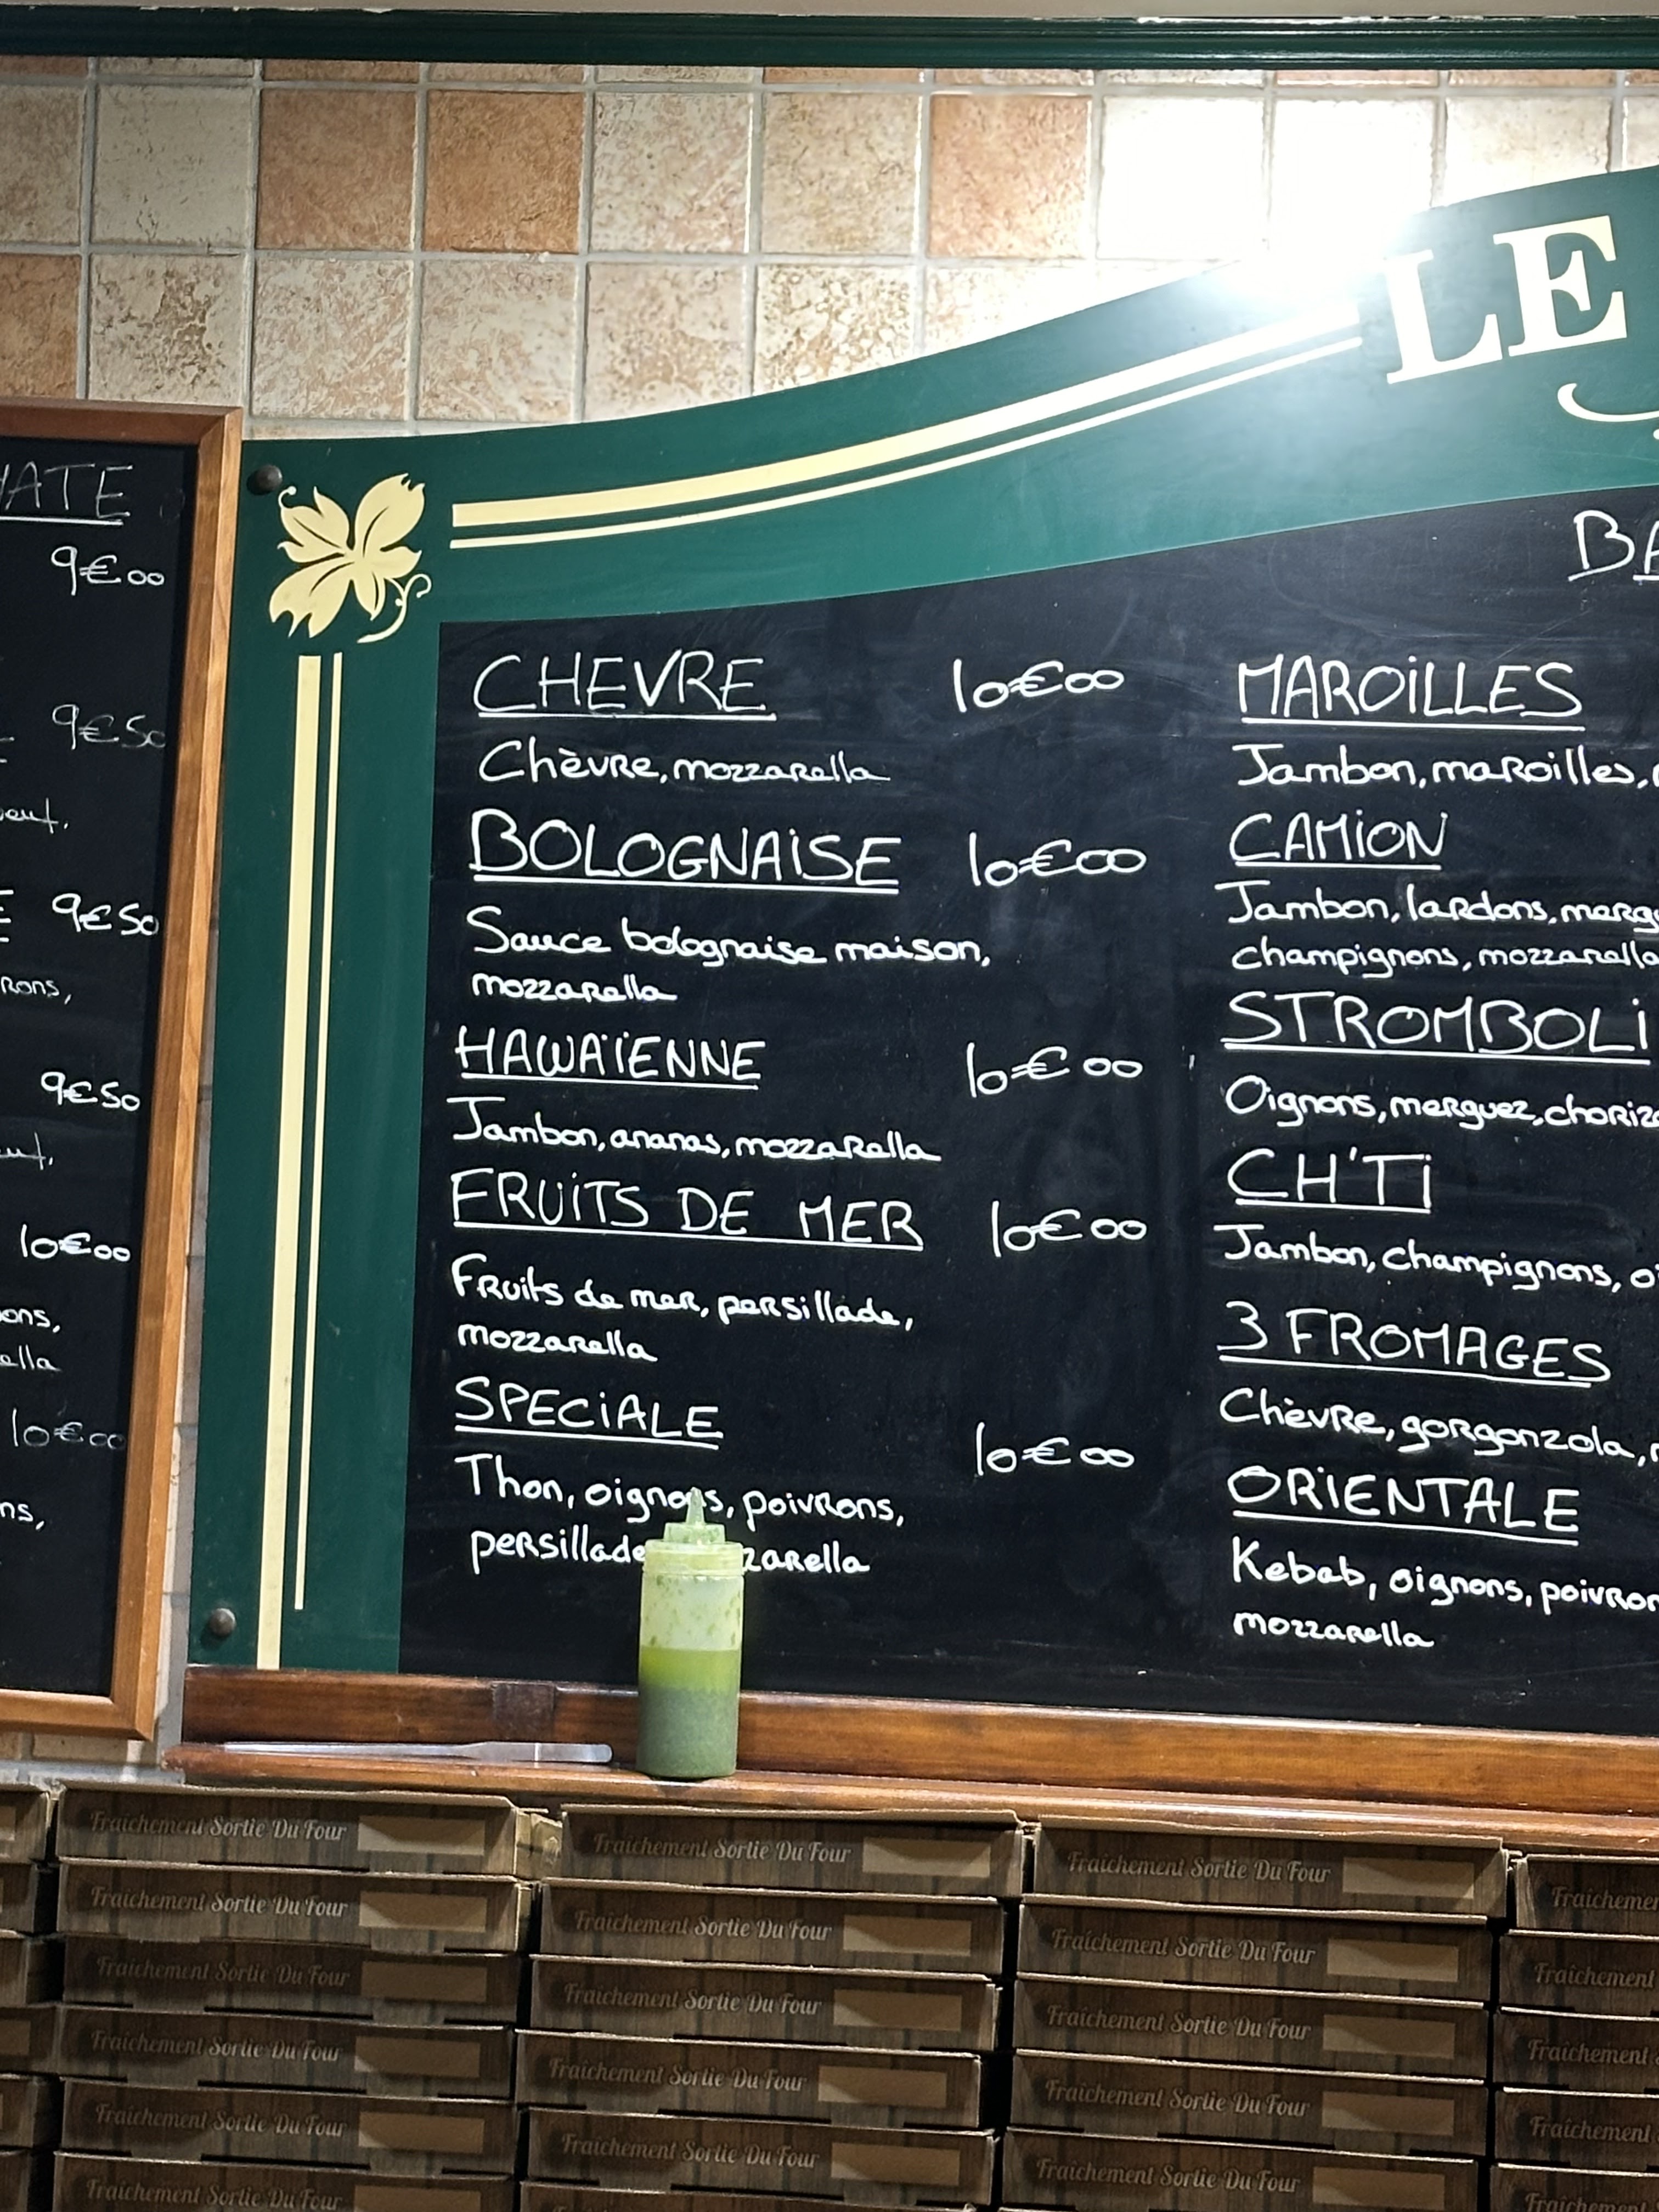 LE
9€00
9€50
9€50
RONS,
9€50
10€00
10€00
CHEVRE 10€00
Chèvre, mozzarella
BOLOGNAISE 10€00
Sauce bolognaise maison,
mozzarella
HAWAÏENNE 10€00
Jambon, ananas, mozzarella
FRUITS DE MER 10€00
Fruits de mer, persillade,
mozzarella
SPECIALE 10€00
Thon, oignons, poivrons,
persillade
MAROILLES
Jambon, maroilles,
CAMION
Jambon, lardons,
champignons, mozzarella
STROMBOLI
Oignons, merguez,
CH'TI
Jambon, champignons,
3 FROMAGES
Chèvre, gorgonzola,
ORIENTALE
Kebab, oignons,
mozzarella
Fraîchement Sortie Du Four
Fraîchement Sortie Du Four
Fraîchement Sortie Du Four
Fraîchement Sortie Du Four
Fraîchement Sortie Du Four
Fraîchement Sortie Du Four
Fraîchement Sortie Du Four
Fraîchement Sortie Du Four
Fraîchement Sortie Du Four
Fraîchement Sortie Du Four
Fraîchement Sortie Du Four
Fraîchement Sortie Du Four
Fraîchement Sortie Du Four
Fraîchement Sortie Du Four
Fraîchement Sortie Du Four
Fraîchement Sortie Du Four
Fraîchement
Fraîchement
Fraîchement